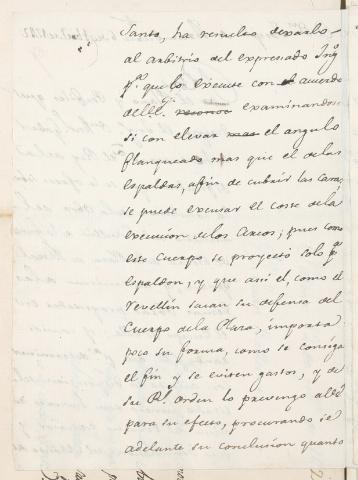 Santo, ha resuelto dexarlo
al arbitrio del expresado Ing.o
p.a que lo execute con acuerdo
de V.E. examinandose
si con elevar el angulo
flanqueado mas que el de las
espaldas, afin de cubrir las caras
se puede excusar el coste de la
execucion de los Arcos; pues como
este Cuerpo se proyectó solo p.a
espaldon, y que asi el, como el
revellin sacan su defensa del
Cuerpo de la Plaza, importa
poco su forma, como se consiga
el fin y se eviten gastos, y de
su R.l orden lo prevengo a V.E.
para su efecto, procurando se
adelante su conclusion quanto